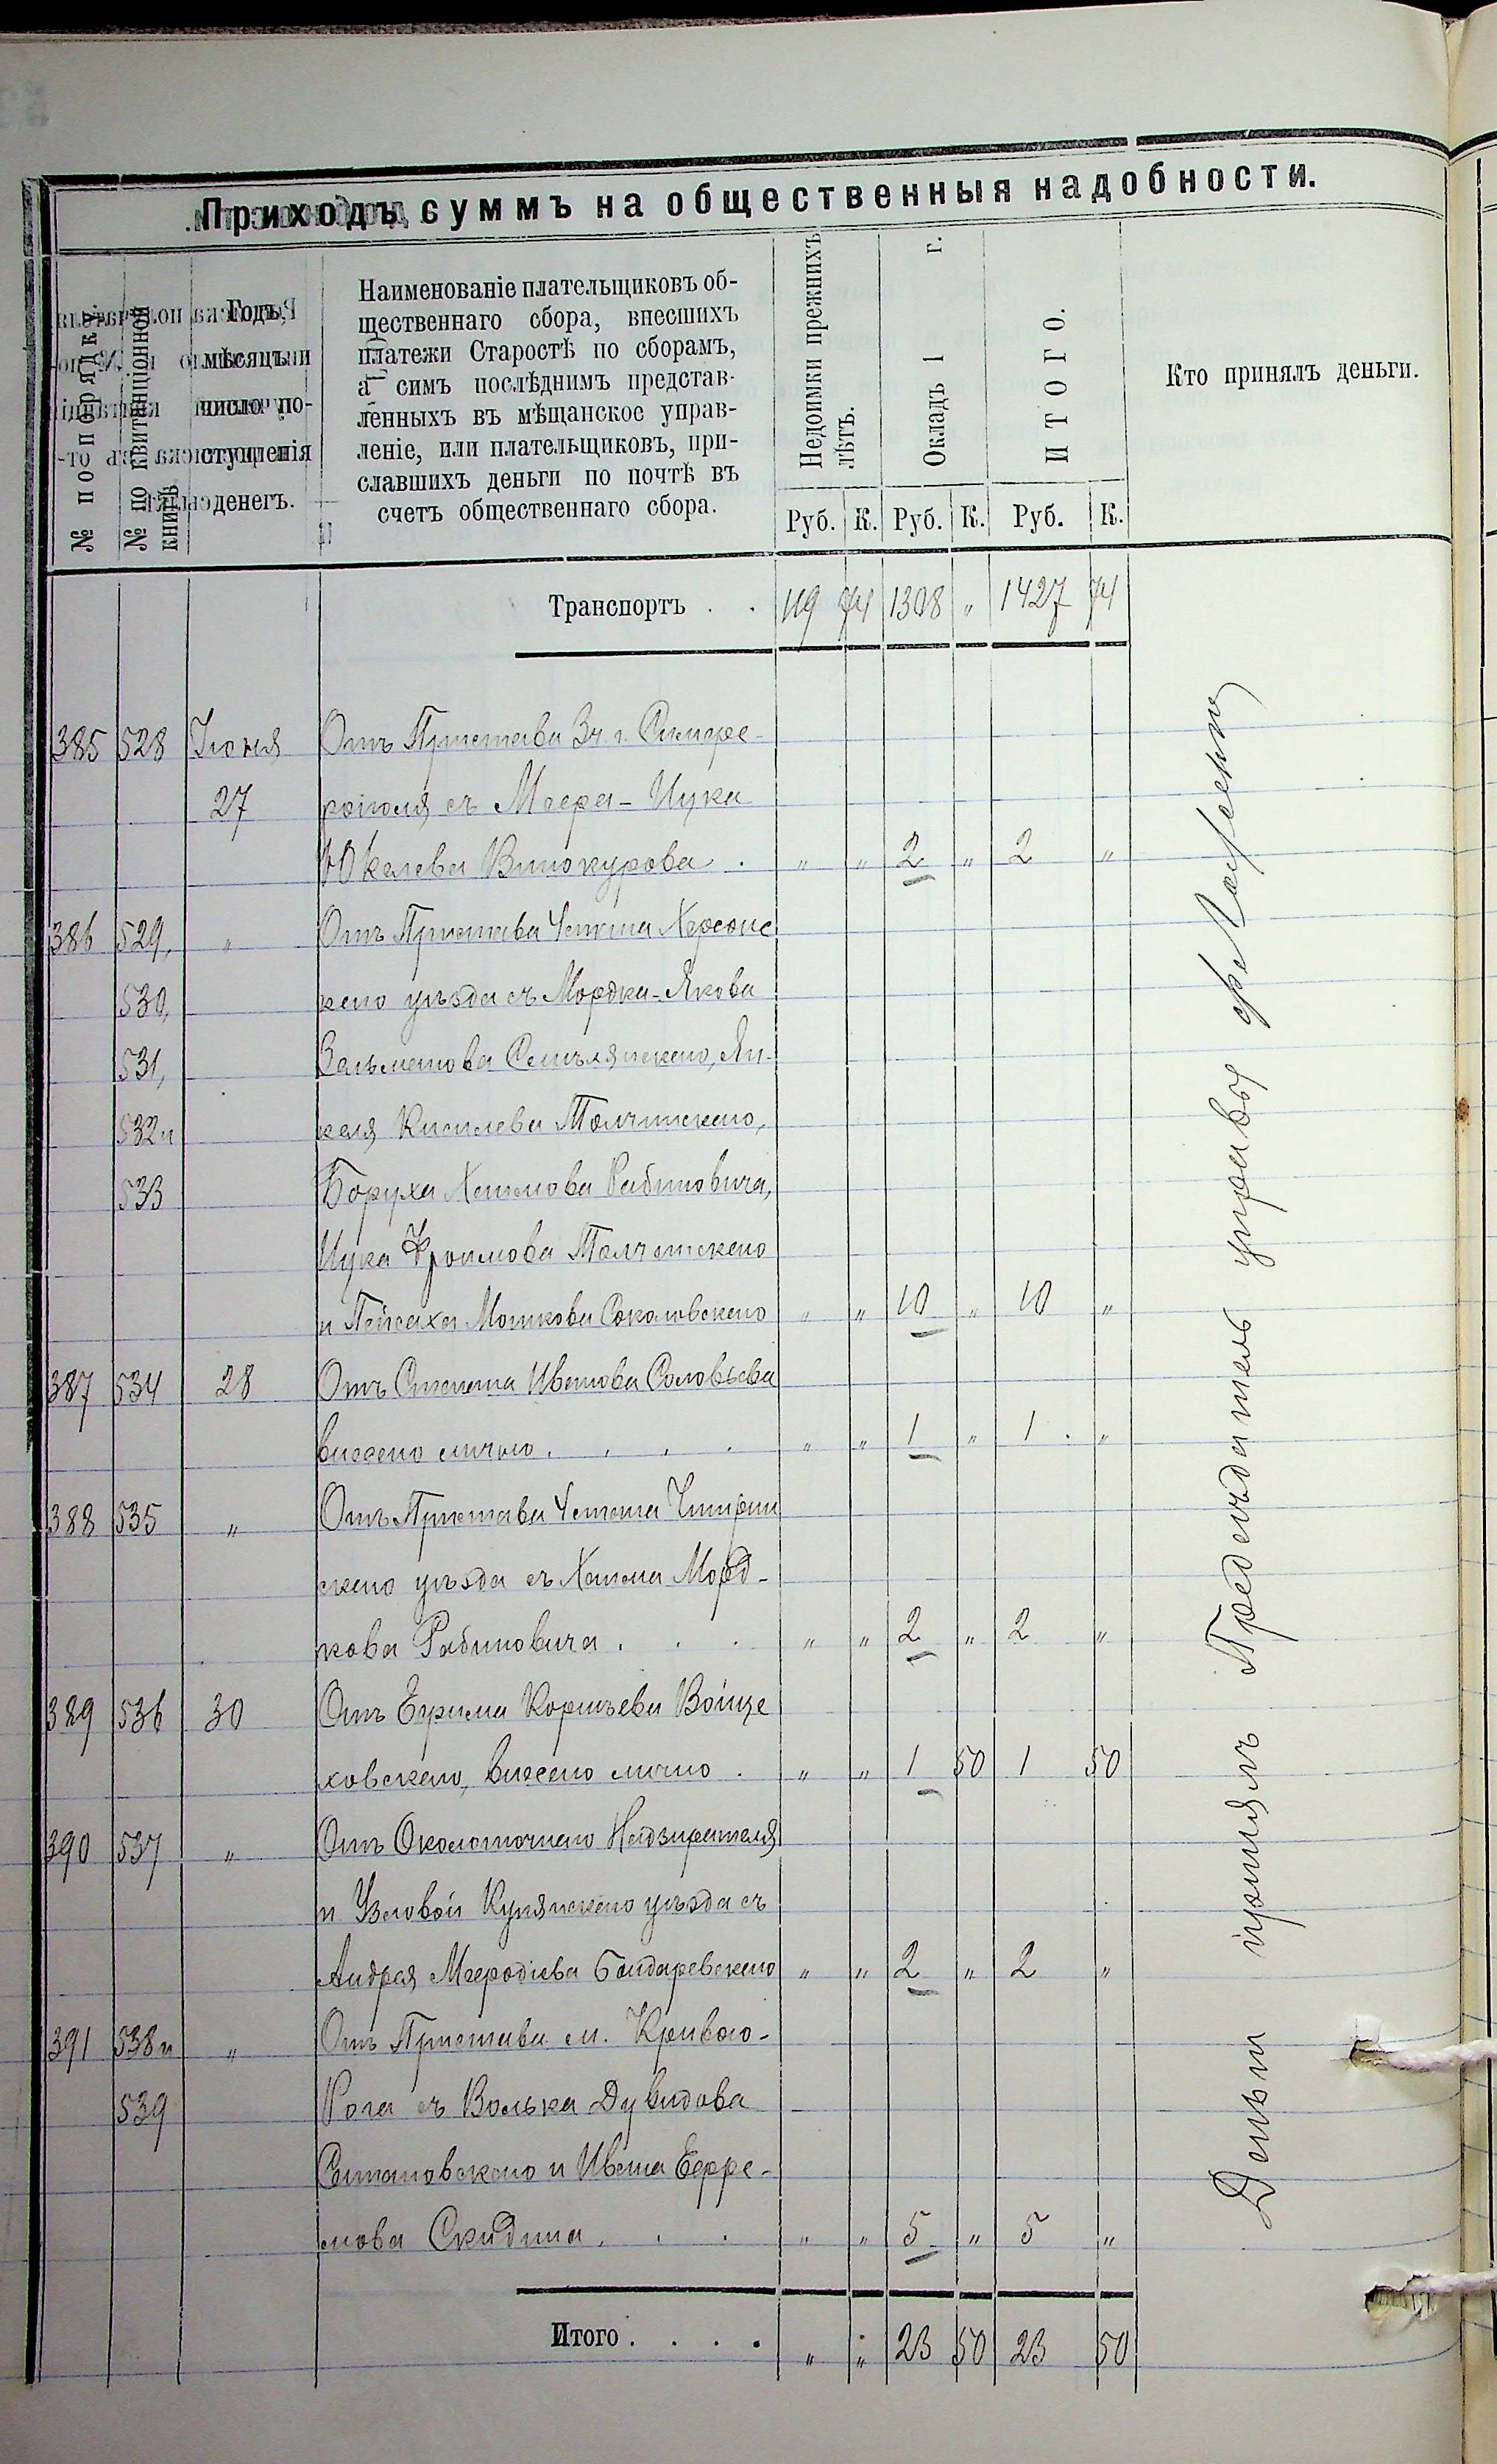 Приходъ суммъ на общественныя надобности.
№ по порядку
№ по квитанціонной книгѣ
Годъ, мѣсяцъ и число поступленія денегъ.
Наименованіе плательщиковъ об-
щественнаго сбора, внесшихъ
платежи Старостѣ по сборамъ,
а симъ послѣднимъ представ-
ленныхъ въ мѣщанское управ-
леніе, или плательщиковъ, при-
славшихъ деньги по почтѣ въ
счетъ общественнаго сбора.
Недоимки прежнихъ лѣтъ.
Окладъ 1 г.
ИТОГО.
Кто принялъ деньги.
Руб. К. Руб. К. Руб. К.
Транспортъ . . 119 74 1308 „ 1427 74
385 528 Іюня Отъ Пристава 3 ч. г. Симфе-
27 рополя съ Меера-Ицка
Юкелева Винокурова . „ „ 2 „ 2 „
386 529, „ Отъ Пристава 4 стана Херсонс
530, каго уѣзда съ Мордка-Якова
531, Зальманова Смѣлянскаго, Ян-
532 и келя Кисилева Толчинскаго,
533 Боруха Хаимова Рабиновича,
Ицка Фроимова Толчинскаго
и Пейсаха Мошкова Соколовскаго „ „ 10 „ 10 „
387 534 28 Отъ Степана Иванова Соловьева
внесено лично . . . . „ „ 1 „ 1 . „
388 535 „ Отъ Пристава 4 стана Чигрин
скаго уѣзда съ Хаима Морд-
кова Рабиновича . . . „ „ 2 „ 2 „
389 536 30 Отъ Ефима Корнѣева Войце
ховскаго, внесено лично . „ „ 1 50 1 50
390 537 „ Отъ Околоточнаго Надзирателя
п. Узловой Купянскаго уѣзда съ
Андрея Мефодіева Бондаревскаго „ „ 2 „ 2 „
391 538 и „ Отъ Пристава м. Кривого-
539 Рога съ Волька Дувидова
Сотановскаго и Ивана Ефре-
мова Скидана . . . „ „ 5 „ 5 „
Итого . . . . „ „ 23 50 23 50
Деньги принялъ Предсѣдатель управы